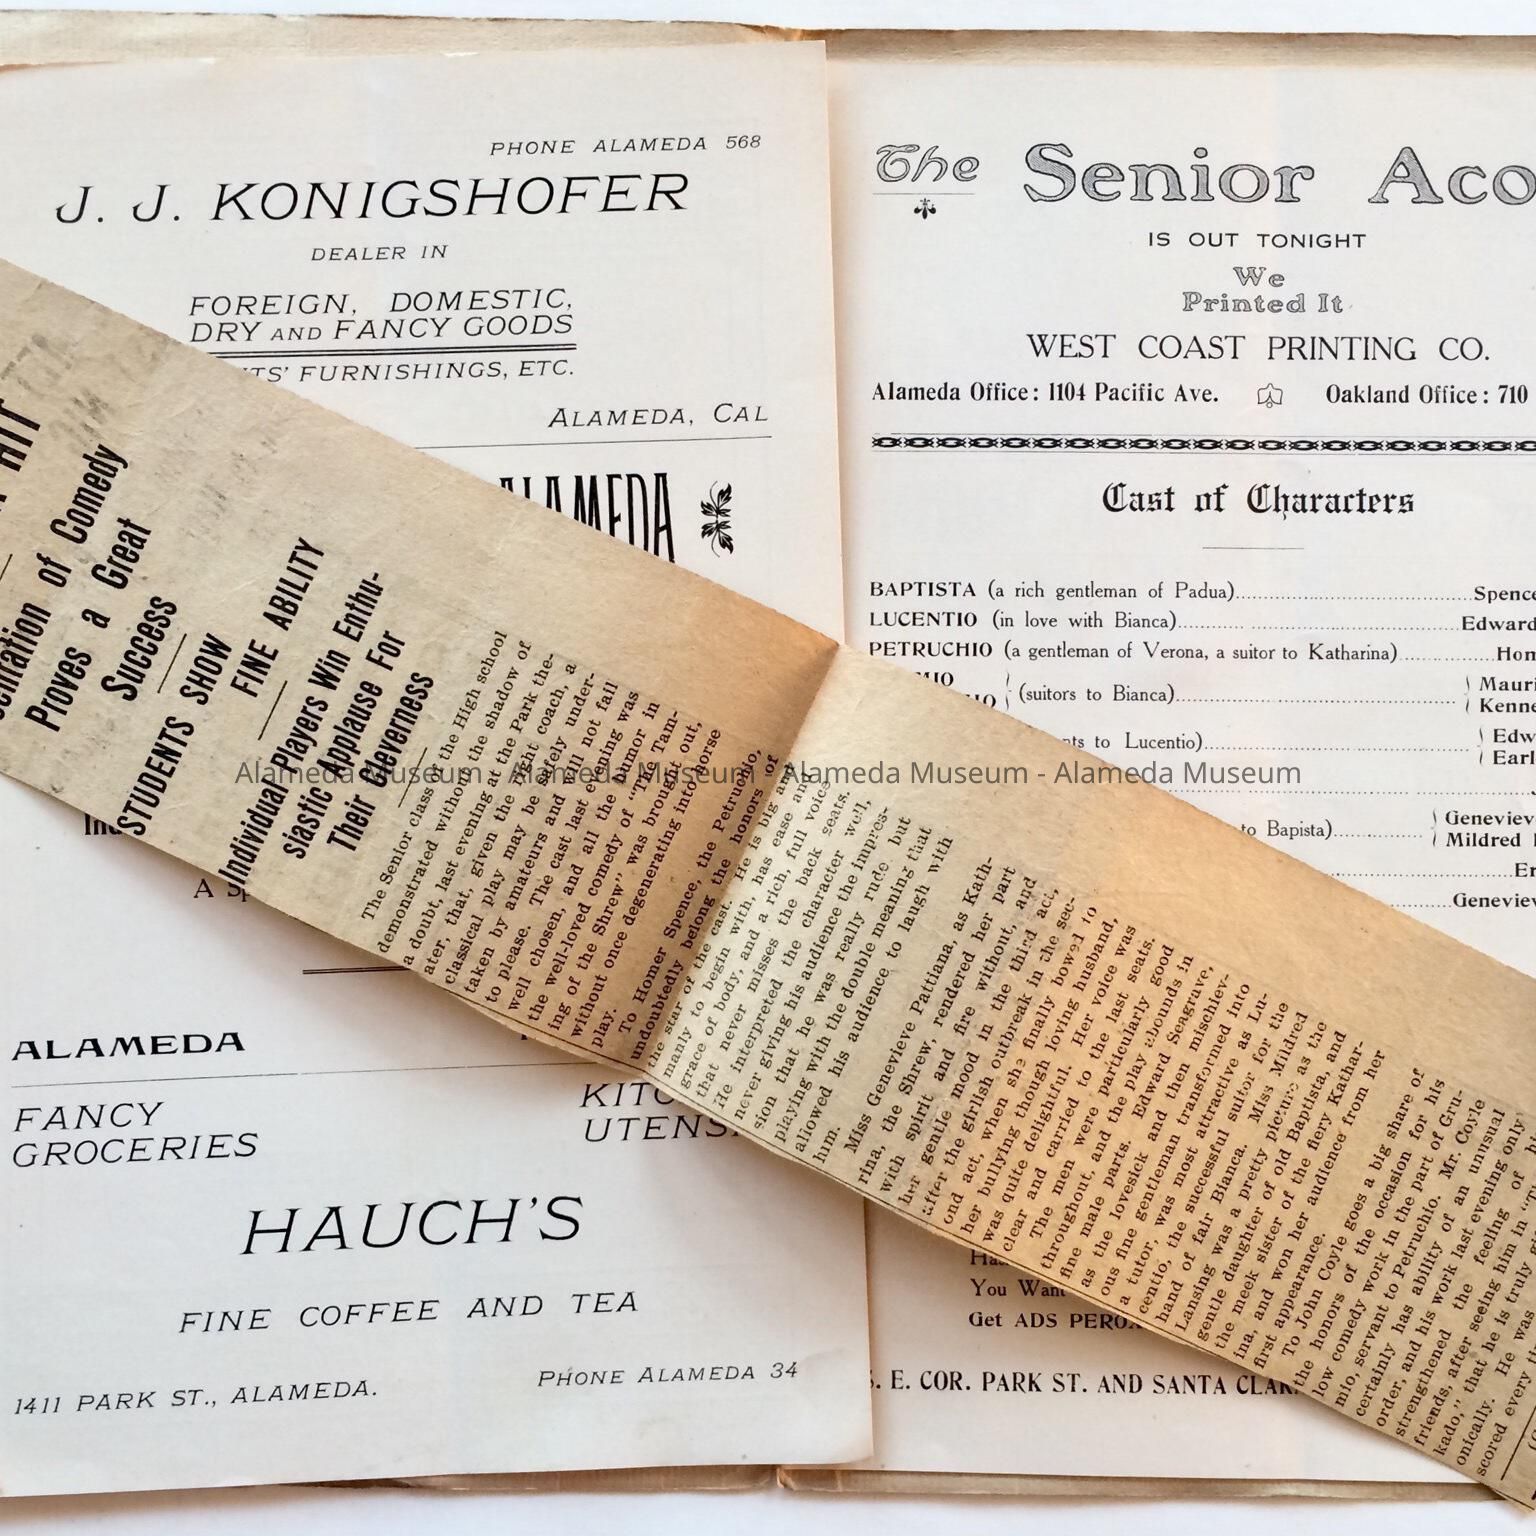 PHONE ALAMEDA 568
J. J. KONIGSHOFER
DEALER IN
FOREIGN, DOMESTIC,
DRY AND FANCY GOODS
TS' FURNISHINGS, ETC.
ALAMEDA, CAL
ALAMEDA
ALAMEDA
FANCY
GROCERIES
KITC
UTENS
HAUCH'S
FINE COFFEE AND TEA
PHONE ALAMEDA 34
1411 PARK ST., ALAMEDA.
The Senior Aco
IS OUT TONIGHT
We
Printed It
WEST COAST PRINTING CO.
Alameda Office: 1104 Pacific Ave. Oakland Office: 710
Cast of Characters
BAPTISTA (a rich gentleman of Padua) Spence
LUCENTIO (in love with Bianca) Edward
PETRUCHIO (a gentleman of Verona, a suitor to Katharina) Hom
MIO
IO (suitors to Bianca) Mauri
Kenne
nts to Lucentio) Edw
Earl
to Bapista) Genevieve
Mildred
Er
Genevieve
You Want
Get ADS PEROX
S. E. COR. PARK ST. AND SANTA CLAR
HIT
entation of Comedy
Proves a Great
Success
STUDENTS SHOW
FINE ABILITY
Individual Players Win Enthu-
siastic Applause For
Their Cleverness
The Senior class of the High school
demonstrated without the shadow of
a doubt, last evening at the Park the-
ater, that, given the right coach, a
classical play may be safely under-
taken by amateurs and will not fail
to please. The cast last evening was
well chosen, and all the humor in
the well-loved comedy of "The Tam-
ing of the Shrew" was brought out,
without once degenerating into horse
play.
To Homer Spence, the Petruchio,
undoubtedly belong the honors of
the star of the cast. He is big and
manly to begin with, has ease and
grace of body, and a rich, full voice
that never misses the back seats.
He interpreted the character well,
never giving his audience the impres-
sion that he was really rude but
playing with the double meaning that
allowed his audience to laugh with
him.
Miss Genevieve Pattiana, as Kath-
rina, the Shrew, rendered her part
with spirit and fire without, and
her gentle mood in the third act,
after the girlish outbreak in the sec-
ond act, when she finally bowed to
her bullying though loving husband,
was quite delightful. Her voice was
clear and carried to the last seats.
The men were particularly good
throughout, and the play abounds in
fine male parts. Edward Seagrave,
as the lovesick and then mischiev-
ous fine gentleman transformed into
a tutor, was most attractive as Lu-
centio, the successful suitor for the
hand of fair Bianca. Miss Mildred
Lansing was a pretty picture as the
gentle daughter of old Baptista, and
the meek sister of the fiery Kathar-
ina, and won her audience from her
first appearance.
To John Coyle goes a big share of
the honors of the occasion for his
low comedy work in the part of Gru-
mio, servant to Petruchio. Mr. Coyle
certainly has ability of an unusual
order, and his work last evening only
strengthened the feeling of
friends, after seeing him in
kado," that he is truly
onically. He was
scored every
Alameda Museum - Alameda Museum - Alameda Museum - Alameda Museum